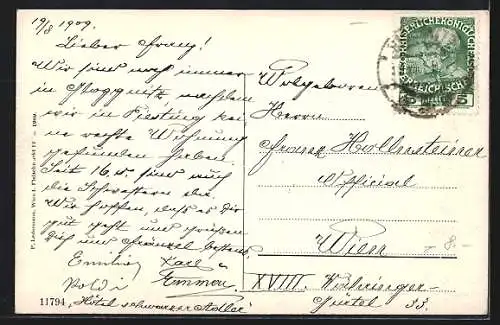 19/8 1909.
Lieber Franz!
Wir sind noch immer
in Gloggnitz, nachdem
wir in Piesting kei
ne rechte Wohnung
gefunden haben.
Seit 16. sind auch
die Schwestern da.
Wir hoffen, daß es Dir
gut geht und grüßen
Dich und Fränzel bestens
Emilie, Karl
Poldi Emma
"Hôtel schwarzer Adler"
11794
P. Ledermann, Wien I. Fleischmarkt 12 – 1909.
Wohlgeboren
Herrn
Franz Hollensteiner
Official
Wien
XVIII. Währinger-
Gürtel 33.
– 8.–
5